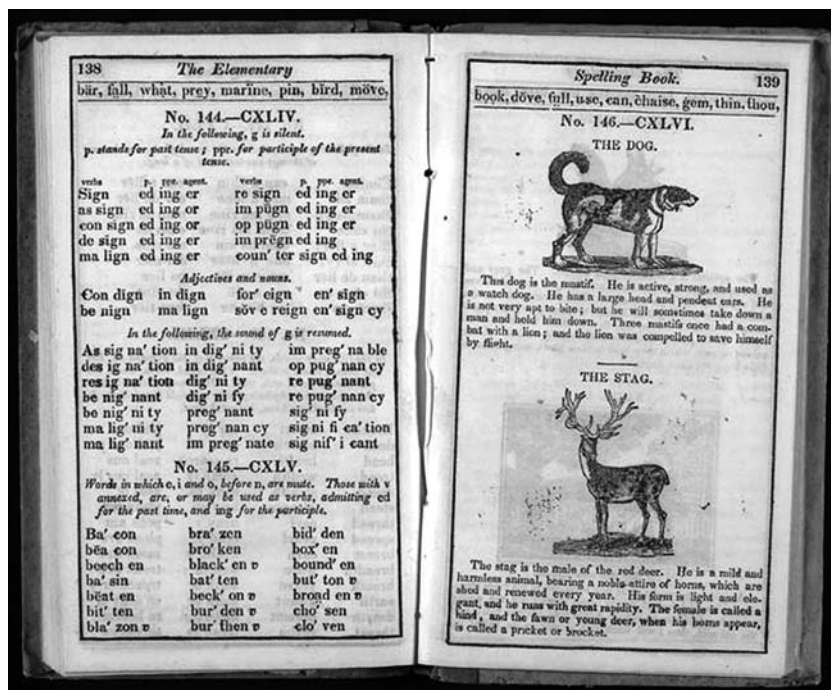 138 The Elementary
bär, fạll, whạt, prey, marïne, pin, bïrd, möve,
No. 144.—CXLIV.
In the following, g is silent.
p. stands for past tense; ppr. for participle of the present
tense.
verbs p. ppr. agent. verbs p. ppr. agent.
Sign ed ing er re sign ed ing er
as sign ed ing or im pūgn ed ing er
con sign ed ing or op pūgn ed ing er
de sign ed ing er im prēgn ed ing
ma lign ed ing er coun' ter sign ed ing
Adjectives and nouns.
Con dign in dign for' eign en' sign
be nign ma lign söv e reign en' sign cy
In the following, the sound of g is resumed.
As sig na' tion in dig' ni ty im preg' na ble
des ig na' tion in dig' nant op pug' nan cy
res ig na' tion dig' ni ty re pug' nant
be nig' nant dig' ni fy re pug' nan cy
be nig' ni ty preg' nant sig' ni fy
ma lig' ni ty preg' nan cy sig ni fi ca' tion
ma lig' nant im preg' nate sig nif' i cant
No. 145.—CXLV.
Words in which e, i and o, before n, are mute. Those with v
annexed, are, or may be used as verbs, admitting ed
for the past time, and ing for the participle.
Ba' con bra' zen bid' den
bēa con bro' ken box' en
beech en black' en v bound' en
ba' sin bat' ten but' ton v
bēat en beck' on v broad en v
bit' ten bur' den v cho' sen
bla' zon v bur' then v clo' ven
Spelling Book. 139
bọọk, döve, fụll, use, can, chaise, gem, thin, thou,
No. 146.—CXLVI.
THE DOG.
This dog is the mastif. He is active, strong, and used as
a watch dog. He has a large head and pendent ears. He
is not very apt to bite; but he will sometimes take down a
man and hold him down. Three mastifs once had a com-
bat with a lion; and the lion was compelled to save himself
by flight.
THE STAG.
The stag is the male of the red deer. He is a mild and
harmless animal, bearing a noble attire of horns, which are
shed and renewed every year. His form is light and ele-
gant, and he runs with great rapidity. The female is called a
hind, and the fawn or young deer, when his horns appear,
is called a pricket or brocket.